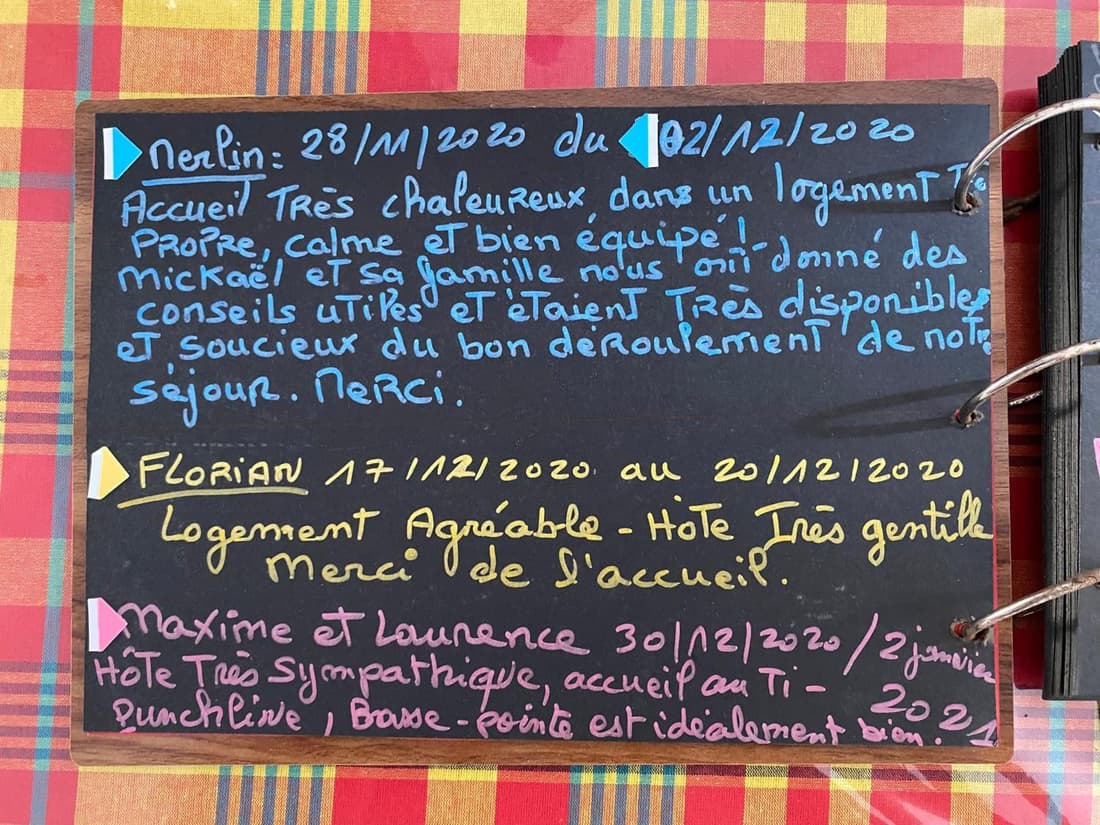 Merlin: 28/11/2020 du 02/12/2020
Accueil Très chaleureux, dans un logement Tr
PROPRE, calme et bien équipé !
Mickaël et sa famille nous ont donné des
conseils utiles et étaient Très disponibles
et soucieux du bon déroulement de notre
séjour. Merci.
FLORIAN 17/12/2020 au 20/12/2020
Logement Agréable - Hôte Très gentille
Merci de l'accueil.
Maxime et Laurence 30/12/2020 / 2 janvier
Hôte Très Sympathique, accueil au Ti- 2021
Punchline, Basse-pointe est idéalement bien.